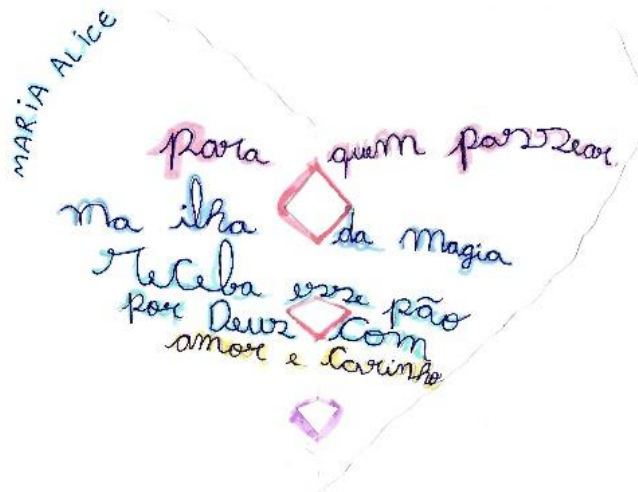 MARIA ALICE
Para quem passear
na ilha da magia
receba esse pão
por Deus com
amor e carinho